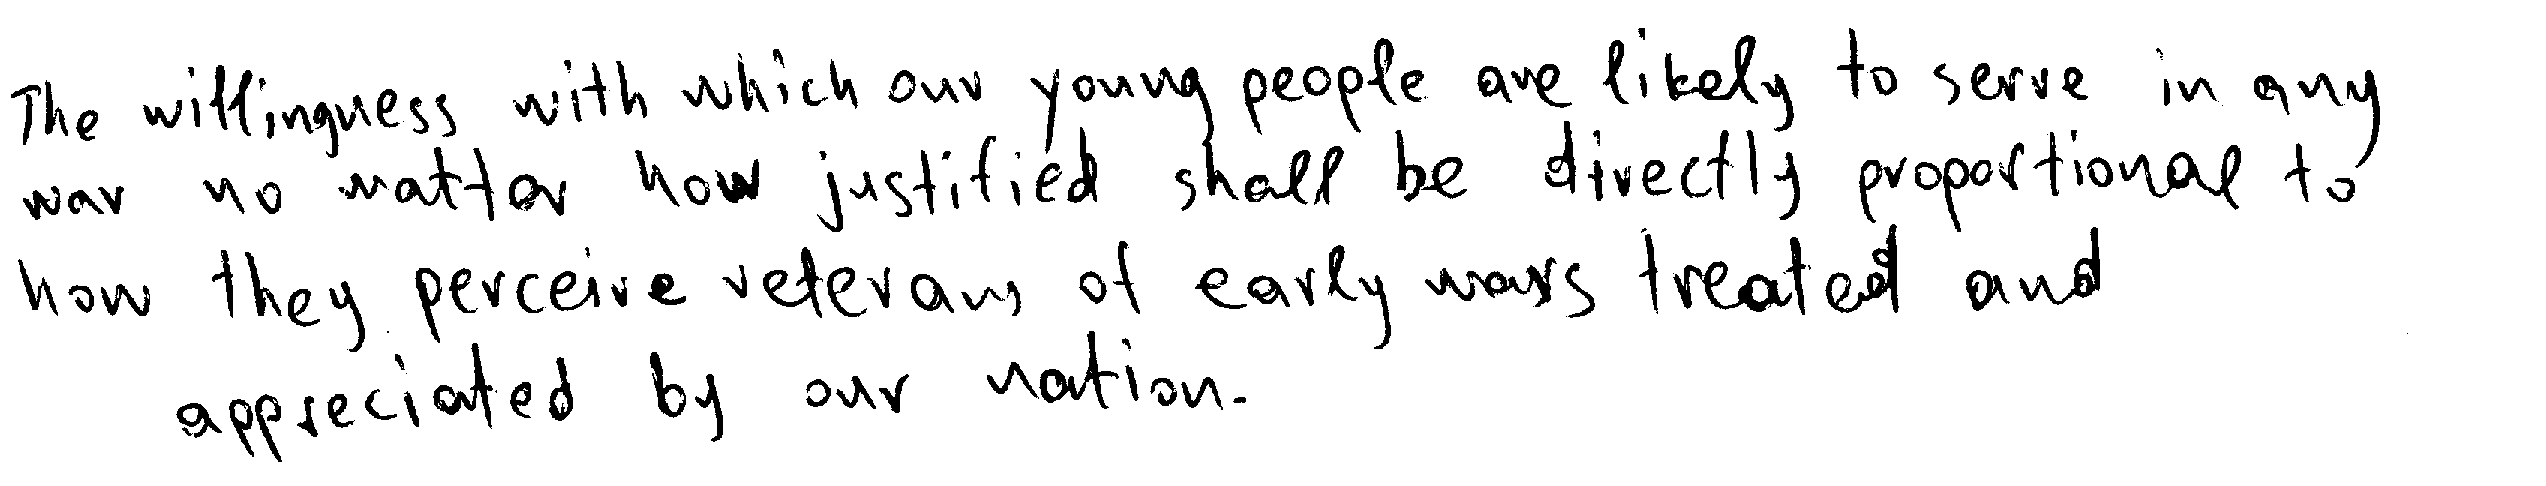 The willingness with which our young people are likely to serve in any
war no matter how justified shall be directly proportional to
how they perceive veterans of early wars treated and
appreciated by our nation.